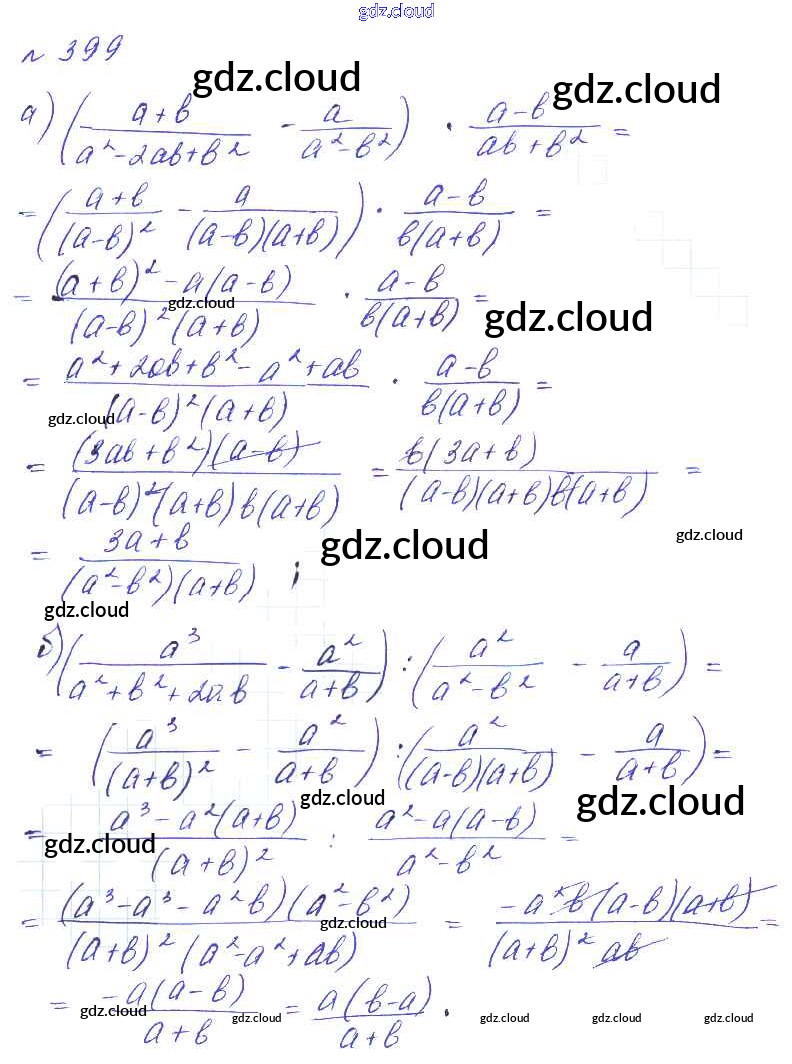 gdz.cloud
№ 399
gdz.cloud gdz.cloud
а) ((a+b)/(a²-2ab+b²) - a/(a²-b²)) · (a-b)/(ab+b²) =
= ((a+b)/(a-b)² - a/((a-b)(a+b))) · (a-b)/(b(a+b)) =
= ((a+b)²-a(a-b))/((a-b)²(a+b)) · (a-b)/(b(a+b)) =
gdz.cloud gdz.cloud
= (a²+2ab+b²-a²+ab)/((a-b)²(a+b)) · (a-b)/(b(a+b)) =
gdz.cloud
= ((3ab+b²)(a-b))/((a-b)²(a+b)b(a+b)) = (b(3a+b))/((a-b)(a+b)b(a+b)) =
gdz.cloud
= (3a+b)/((a²-b²)(a+b)) ;
gdz.cloud
gdz.cloud
б) (a³/(a²+b²+2ab) - a²/(a+b)) : (a²/(a²-b²) - a/(a+b)) =
= (a³/(a+b)² - a²/(a+b)) : (a²/((a-b)(a+b)) - a/(a+b)) =
gdz.cloud gdz.cloud
= (a³-a²(a+b))/(a+b)² : (a²-a(a-b))/(a²-b²) =
gdz.cloud
= ((a³-a³-a²b)(a²-b²))/((a+b)²(a²-a²+ab)) = (-a²b(a-b)(a+b))/((a+b)²ab) =
gdz.cloud
= (-a(a-b))/(a+b) = (a(b-a))/(a+b) .
gdz.cloud gdz.cloud gdz.cloud gdz.cloud gdz.cloud gdz.cloud